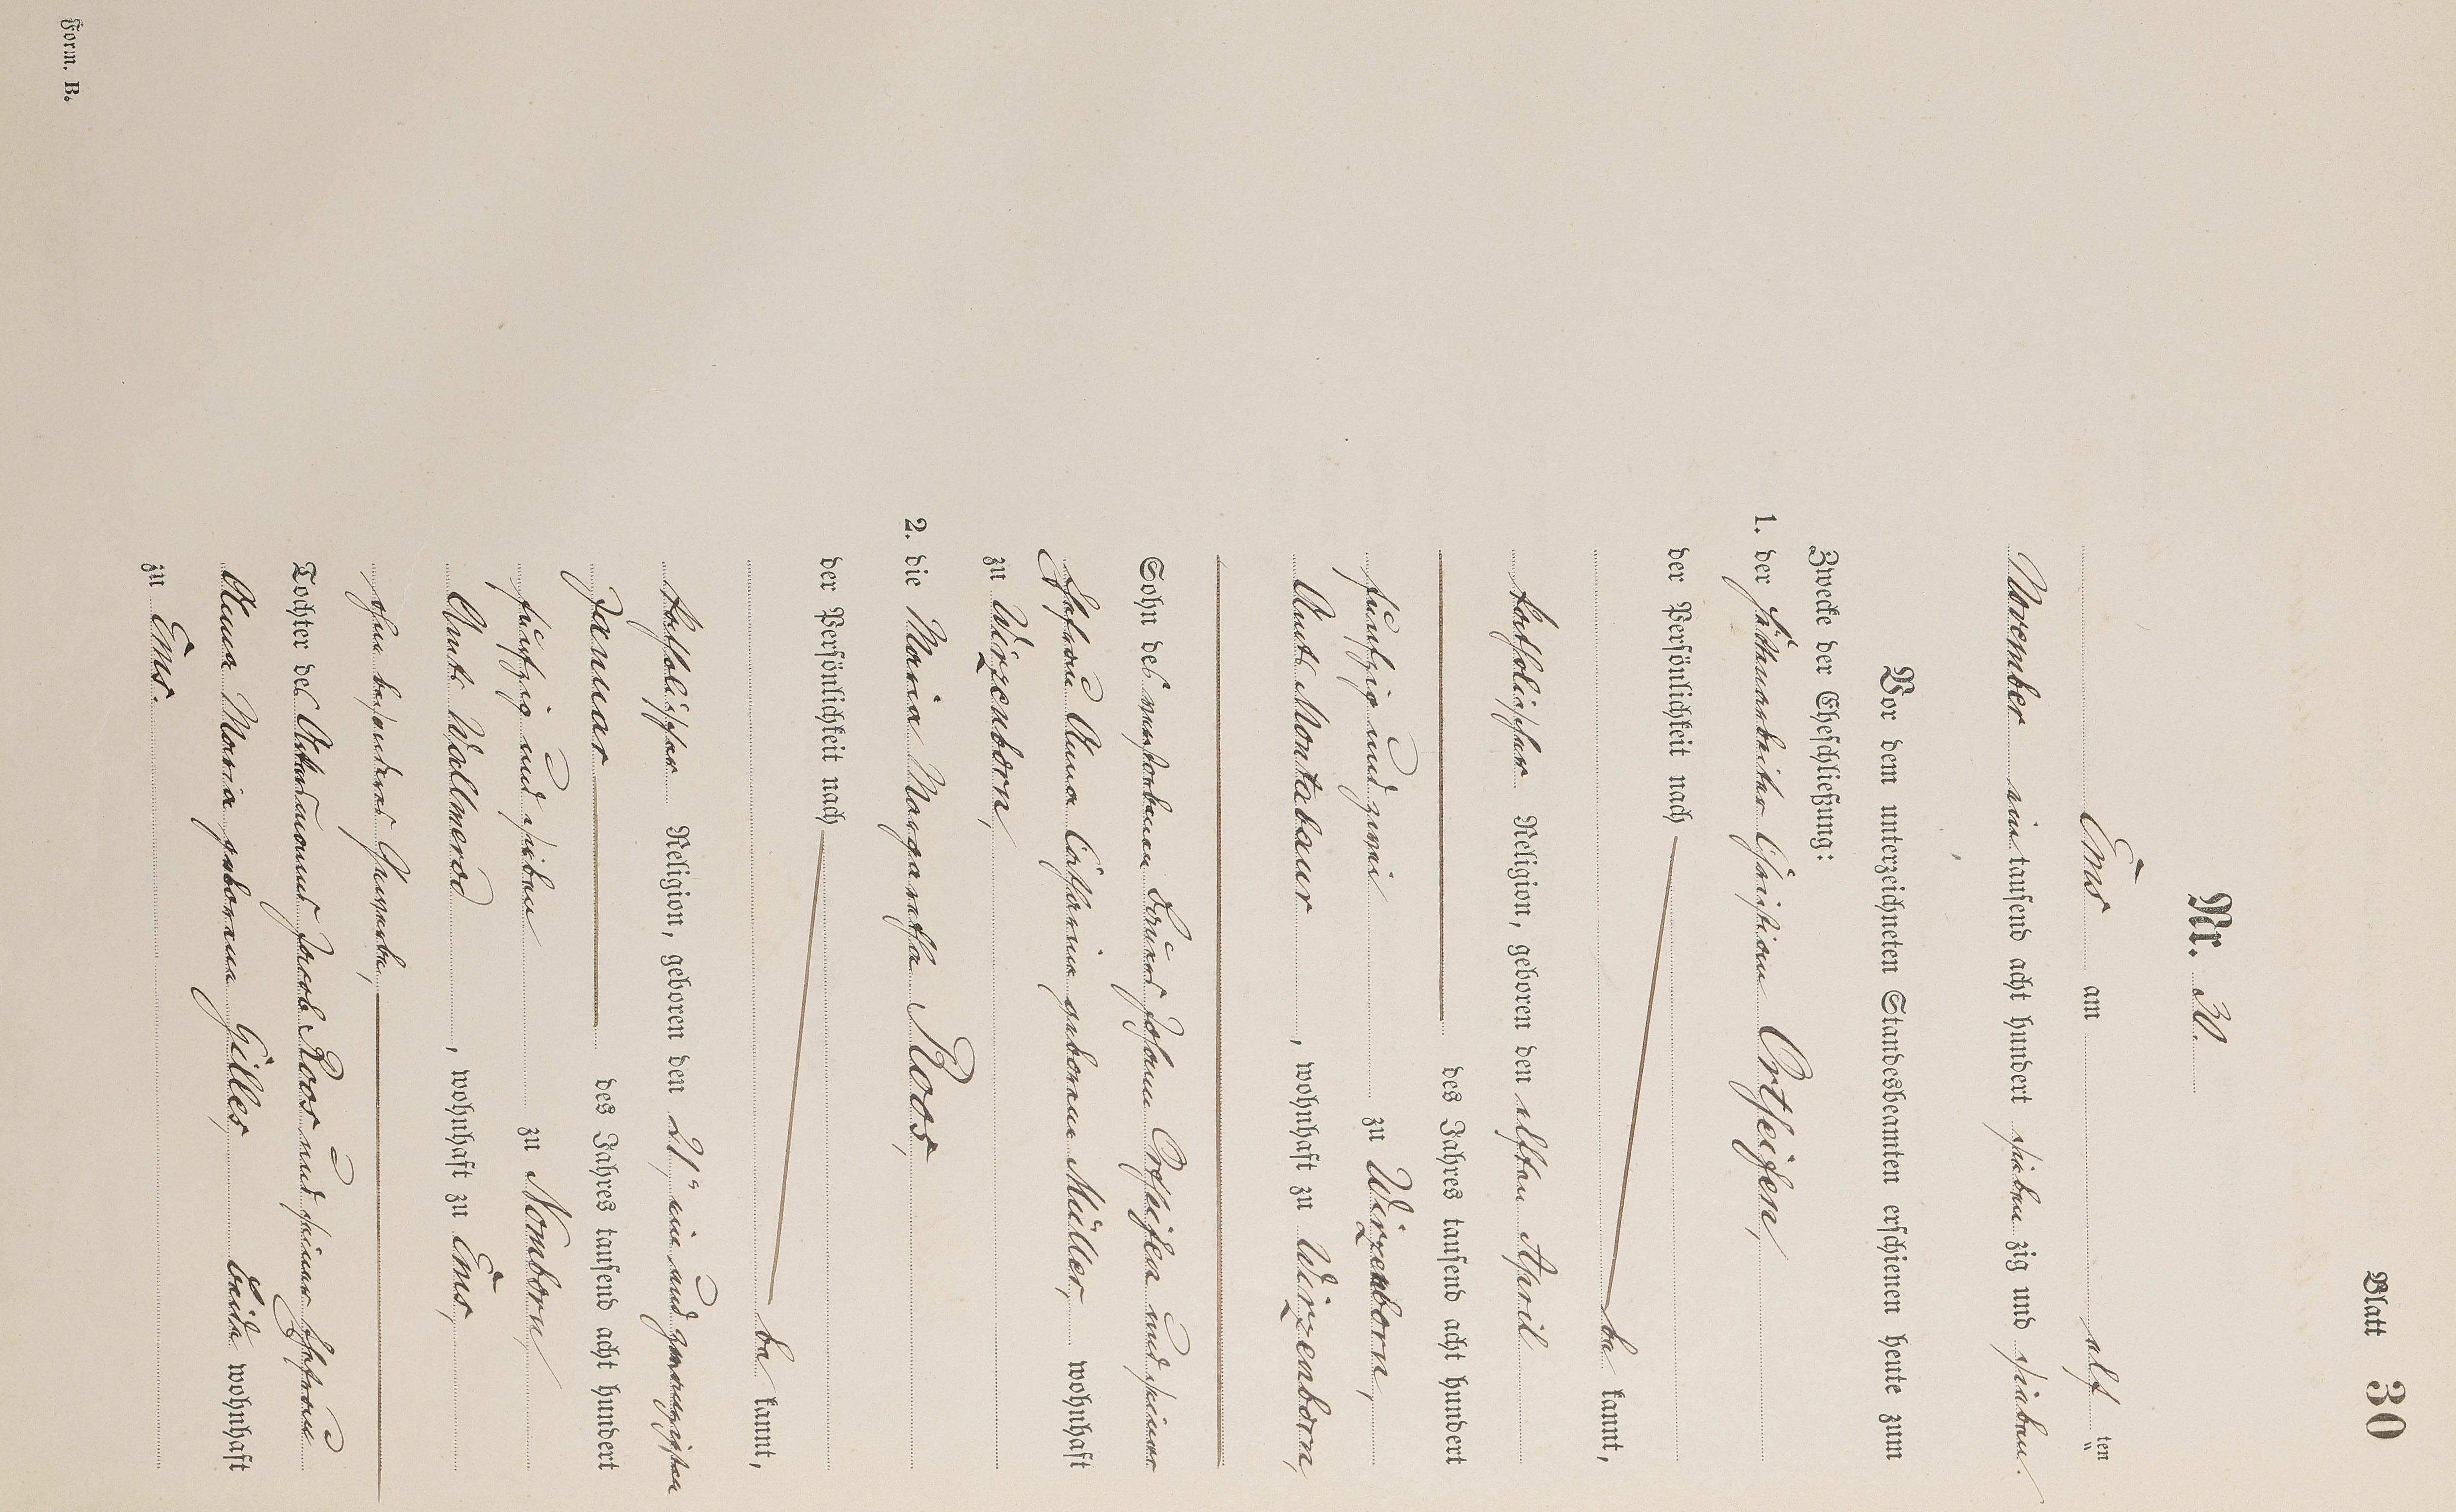 Blatt 30
Nr. 30.
Ems am elf ten
November ein tausend acht hundert sieben zig und sieben.
Vor dem unterzeichneten Standesbeamten erschienen heute zum
Zwecke der Eheschließung:
1. der Hüttenarbeiter Christian Ortseifen,
der Persönlichkeit nach
be kannt,
katholischer Religion, geboren den elften April
des Jahres tausend acht hundert
fünfzig und zwei zu Wirzenborn,
Amts Montabaur, wohnhaft zu Wirzenborn,
Sohn des verstorbenen Johann Ortseifen und seiner
Ehefrau Anna Catharina geborene Müller, wohnhaft
zu Wirzenborn,
2. die Maria Margaretha Roos,
der Persönlichkeit nach
be kannt,
katholischer Religion, geboren den 21. ein und zwanzigsten
Januar des Jahres tausend acht hundert
fünfzig und sieben zu Nomborn,
Amts Wallmerod, wohnhaft zu Ems,
ohne besonderes Gewerbe,
Tochter des Ackersmanns Jacob Roos und seiner Ehefrau
Anna Maria geborene Gilles, beide wohnhaft
zu Ems.
Form. B.